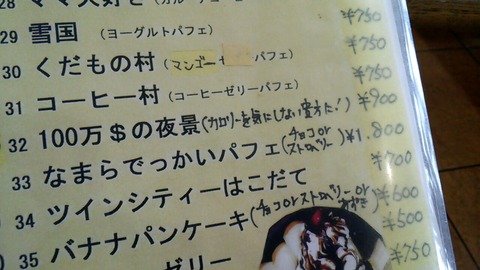 28 ママ大好き(カルーアコーヒー ¥750
29 雪国 (ヨーグルトパフェ) ¥750
30 くだもの村(マンゴー パフェ) ¥750
31 コーヒー村 (コーヒーゼリーパフェ) ¥900
32 100万$の夜景(カロリーを気にしない貴方に!) ¥1.800
33 なまらでっかいパフェ(チョコorストロベリー) ¥700
34 ツインシティーはこだて(チョコorストロベリーorあずき) ¥600
35 バナナパンケーキ ¥500
ゼリー ¥750